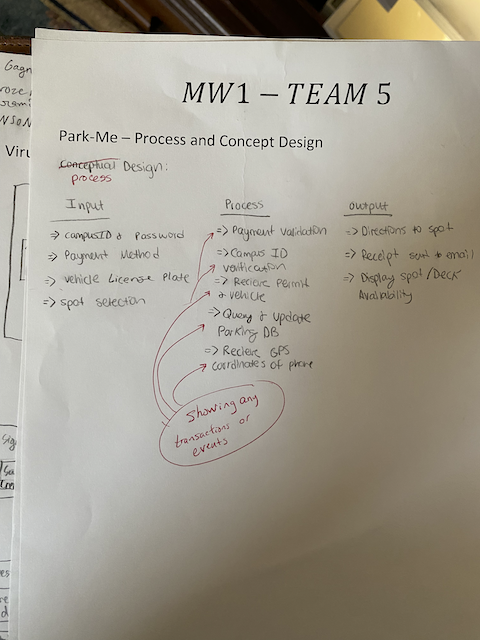 MW1 – TEAM 5
Park-Me – Process and Concept Design
Conceptual Design:
process
Input
=> campusID & Password
=> Payment Method
=> Vehicle License Plate
=> spot selection
Process
=> Payment Validation
=> Campus ID
verification
=> Recieve Permit
& vehicle
=> Query & Update
Parking DB
=> Recieve GPS
coordinates of phone
Output
=> Directions to spot
=> Receipt sent to email
=> Display spot/Deck
Availability
Showing any
transactions or
events
Gagn
Viru
Sig